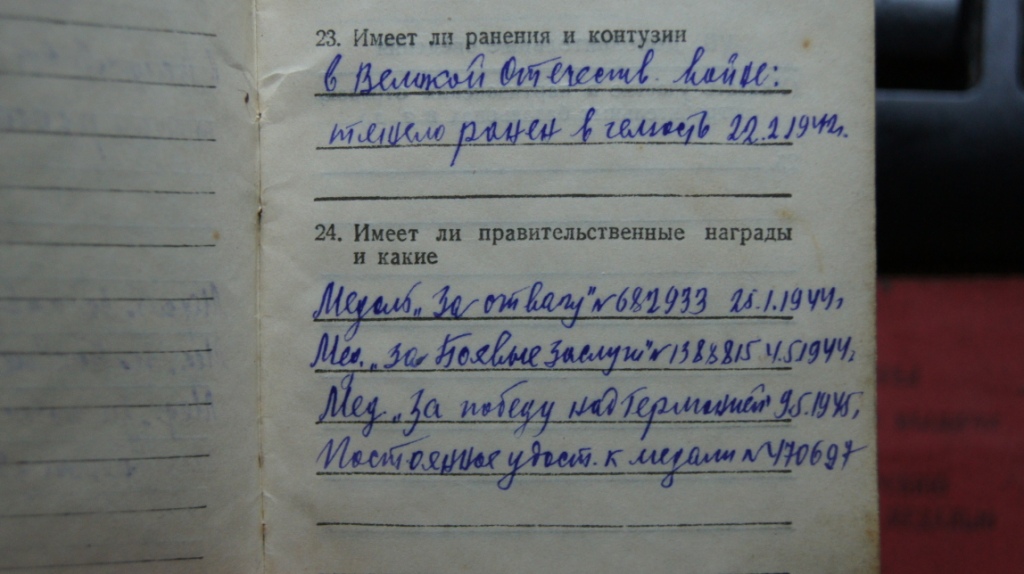 23. Имеет ли ранения и контузии
в Великой Отечеств. войне:
тяжело ранен в челюсть 22.2.1942г.
24. Имеет ли правительственные награды
и какие
Медаль „За отвагу" № 682933 25.1.1944г
Мед. „За Боевые Заслуги" № 1388815 4.5.1944г.
Мед „За победу над Германией" 9.5.1945г
Постоянное удост. к медали № 470697